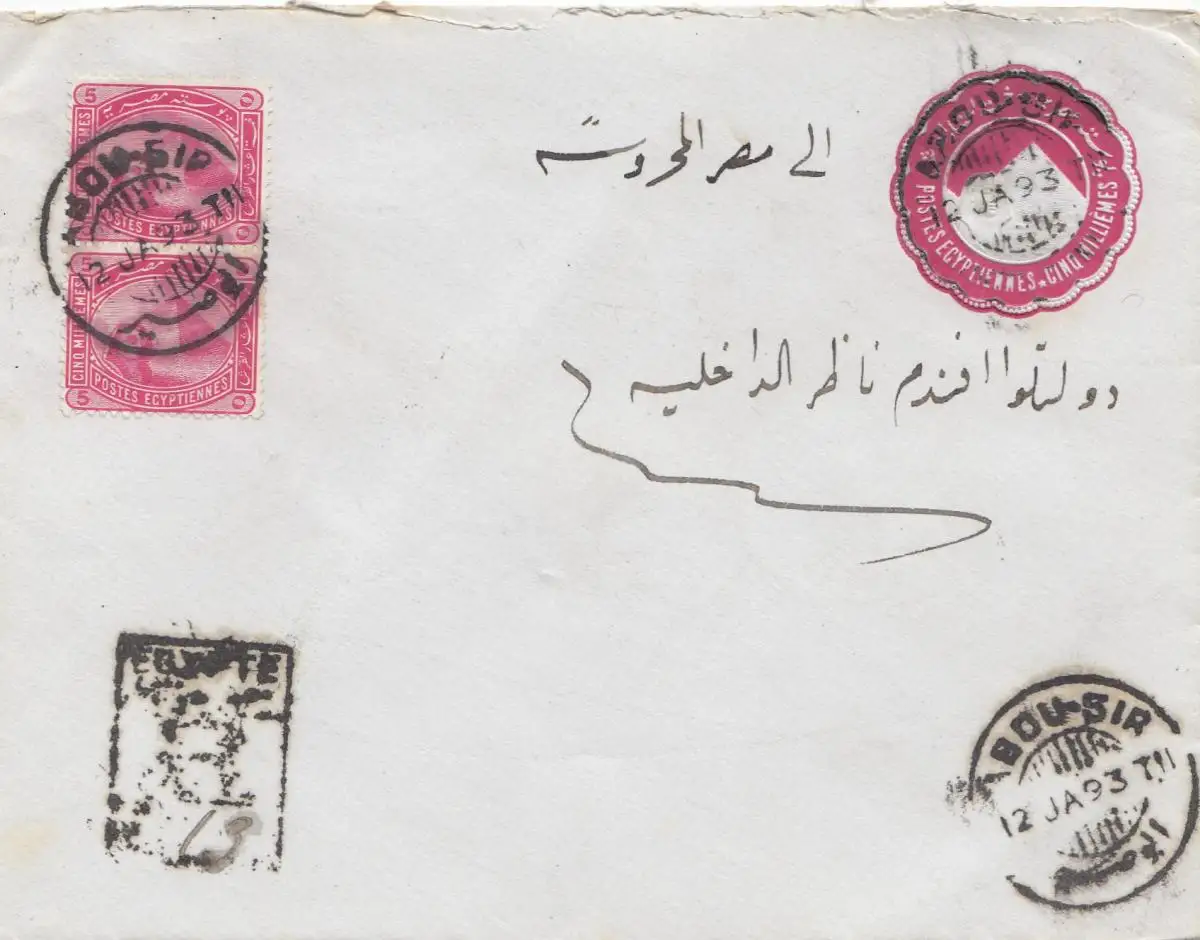 5 بوسته مصرية ٥
CINQ MILLIEMES
POSTES EGYPTIENNES
ABOU-SIR
12 JA 93 TII
5
CINQ MILLIEMES
5 POSTES EGYPTIENNES ٥
الى مصر المحروسة
ABOU-SIR
12 JA 93
POSTES EGYPTIENNES ★ CINQ MILLIÈMES
دولتلوا افندم ناظر الداخليه
EGYPTE
13
ABOU-SIR
12 JA 93 TII